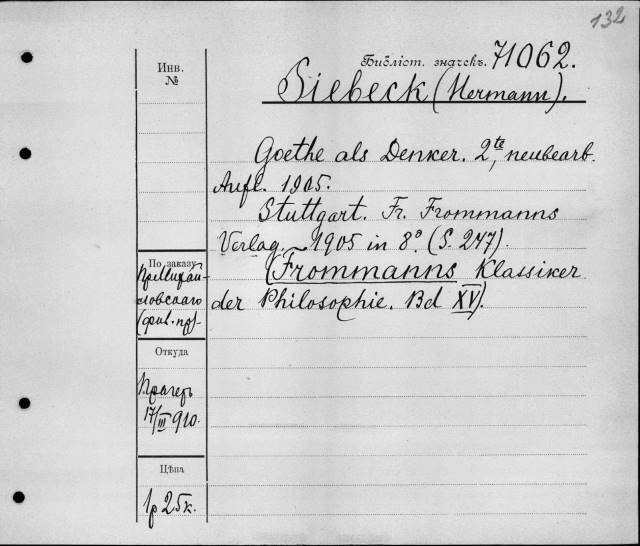 132
Библіот. значекъ. 71062.
Инв.
№
Siebeck (Hermann).
Goethe als Denker. 2te, neubearb.
Aufl. 1905.
Stuttgart. Fr. Frommanns
Verlag. 1905 in 8° (S. 247).
(Frommanns Klassiker
der Philosophie. Bd XV).
По заказу
Пр. Михай-
ловскаго
(фил. пр).
Откуда
Прагеръ
17/III 910.
Цѣна
1р 25к.